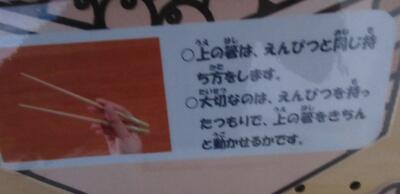 ○上の箸は、えんぴつと同じ持
ち方をします。
○大切なのは、えんぴつを持っ
たつもりで、上の箸をきちん
と動かせるかです。